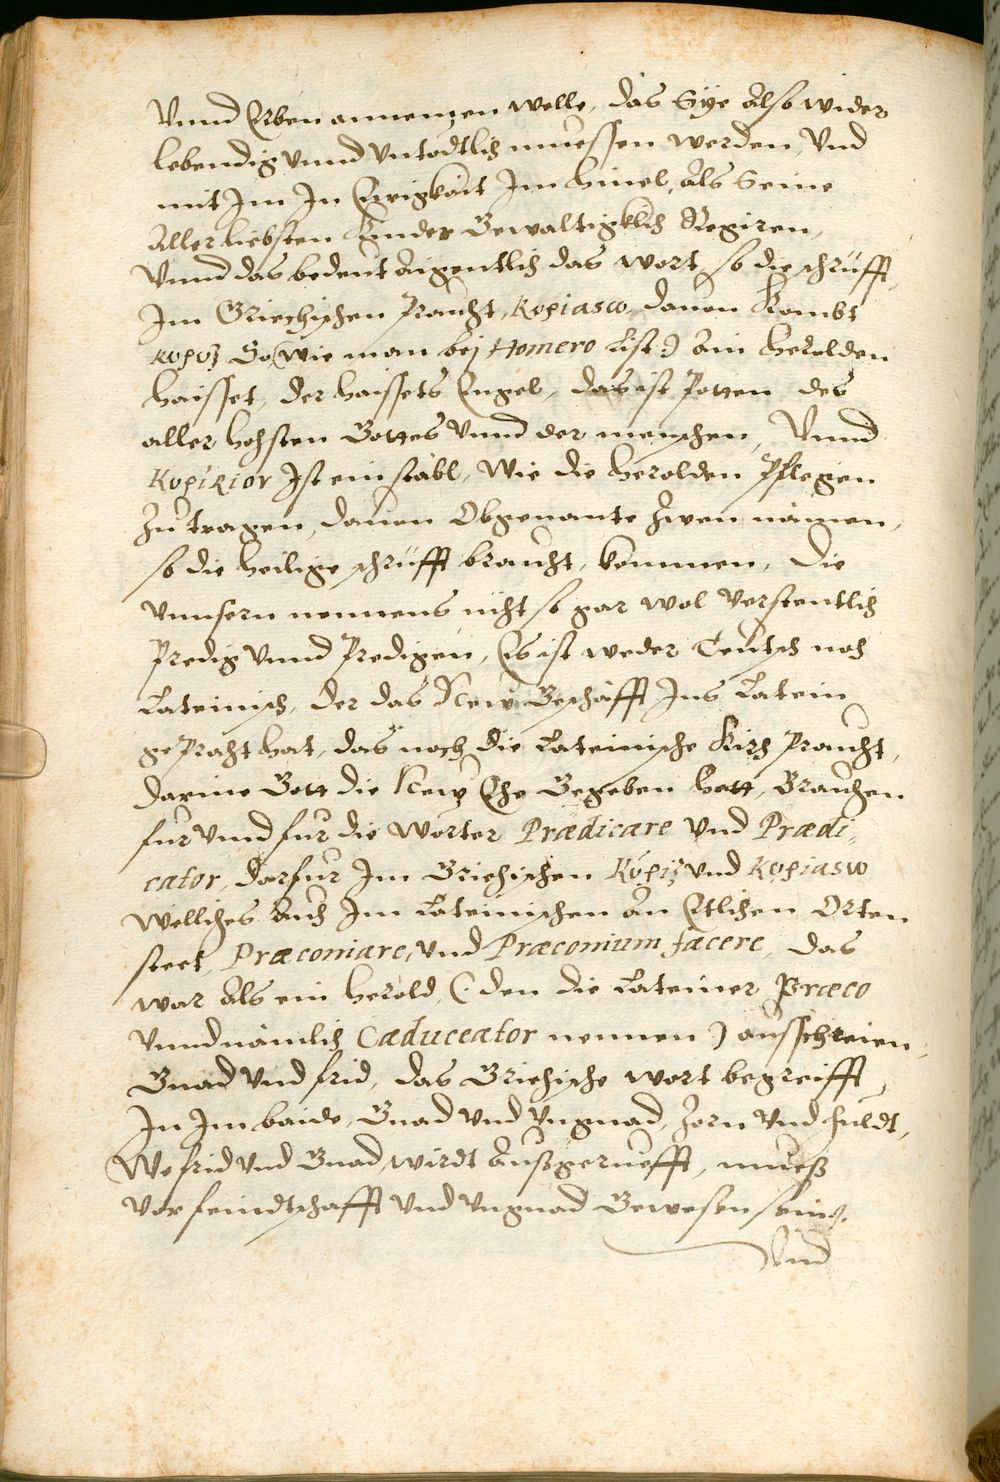 Vnnd Erben annemen welle, das Sÿe also wider
lebendig vnnd vntodtlich muessen werden, Vnd
mit Im In Ewigkait Im himel, Als Seine
Aller liebsten Kinder Gewaltigklich Regiren,
Vnnd das bedeut Aigentlich das wort, so die schrüfft,
Im Griechischen Praucht, Kopiasω, dauon Kombt
kopiz So (wie man bej Homero List:) Ain herolden
haisset, der haissets Engel, das ist Potten des
aller hohsten Gottes Vnnd der menschen, Vnnd
Kopikior Ist ein stäbl, Wie die herolden Pflegen
Zu tragen, dauon Obgenante Zwen namen,
so die heilige schrüfft braucht, kommen, Die
vnnsern nennens nicht so gar wol verstentlich
Predig vnnd Predigen, Es ist weder Teutsch noch
Lateinisch, der das New Geschäfft Ins Latein
gePracht hat, das noch die Lateinische Kirch Praucht,
darinn Gott die New Ehe Begeben hatt, Brauchen
fur vnnd fur die worter Prædicare Vnd Prædi-
cator, darfur Im Griechischen Kopiz vnd Kopiasω
Wellches Auch Im Lateinischen An Etlichen Orten
steet, Præconiare, vnd Præconium facere, das
war Als ein herold, (: den die Lateiner Præco
vnnd nämlich Caduceator nennen) ausschreien,
Gnad vnd frid, das Griechische wort begreifft,
In Im baide, Gnad vnd vngnad, Zorn vnd Huldt,
Wo frid vnd Gnad, wirdt Außgeruefft, mueß
vor feindtschafft vnd vngnad Gewesen sein.
Vnd